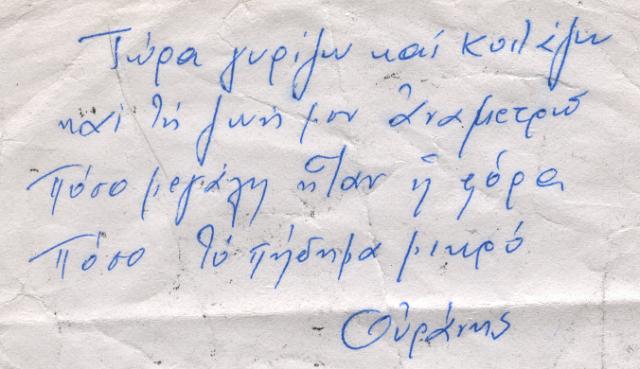 Τώρα γυρίζω καί κοιτάζω
καί τή ζωή μου ἀναμετρῶ
Πόσο μεγάλη ἦταν ἡ φόρα
Πόσο τό πήδημα μικρό
Οὐράνης